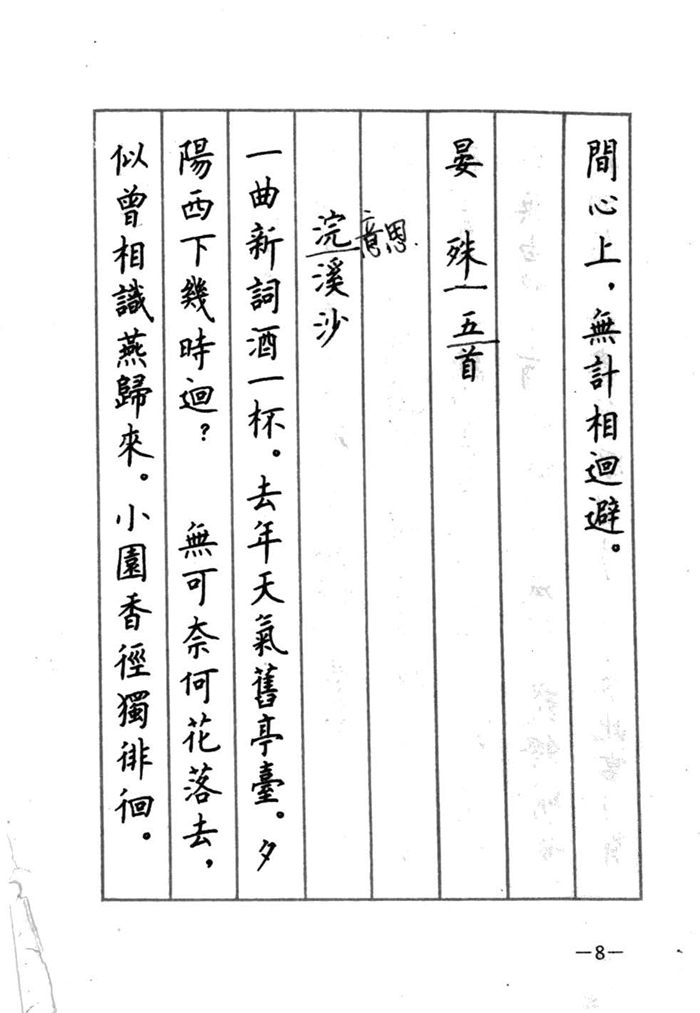 間心上，無計相迴避。
晏 殊一五首
意恩
浣溪沙
一曲新詞酒一杯。去年天氣舊亭臺。夕
陽西下幾時迴？ 無可奈何花落去，
似曾相識燕歸來。小園香徑獨徘徊。
—8—